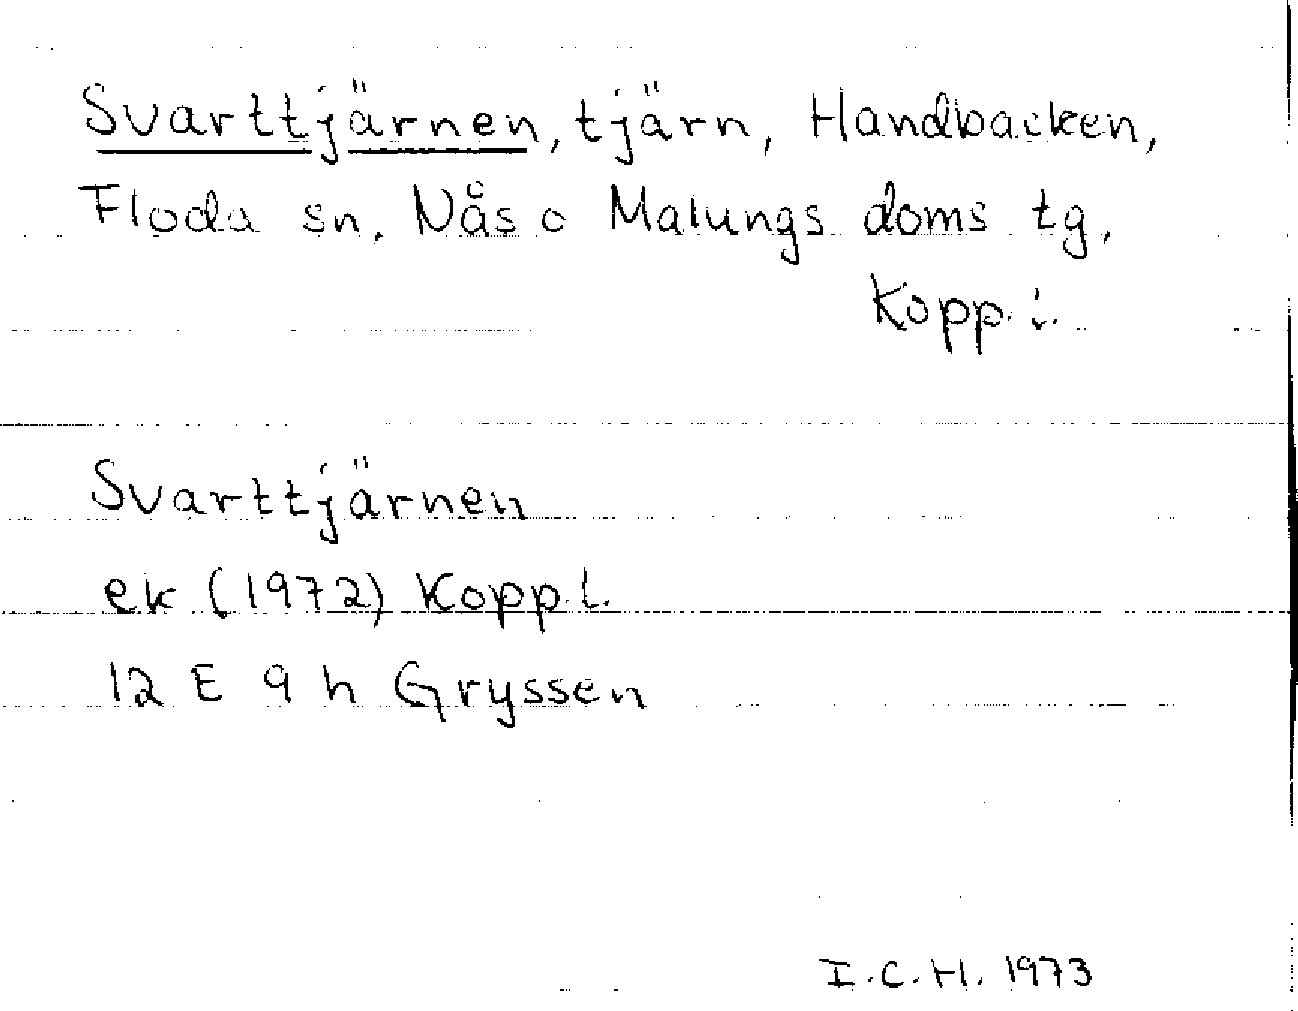 Svarttjärnen, tjärn, Handbacken,
Floda sn. Nås o Malungs doms tg,
Kopp. l.
Svarttjärnen
ek (1972) Kopp. l.
12 E 9 h Gryssen
I.C.H. 1973